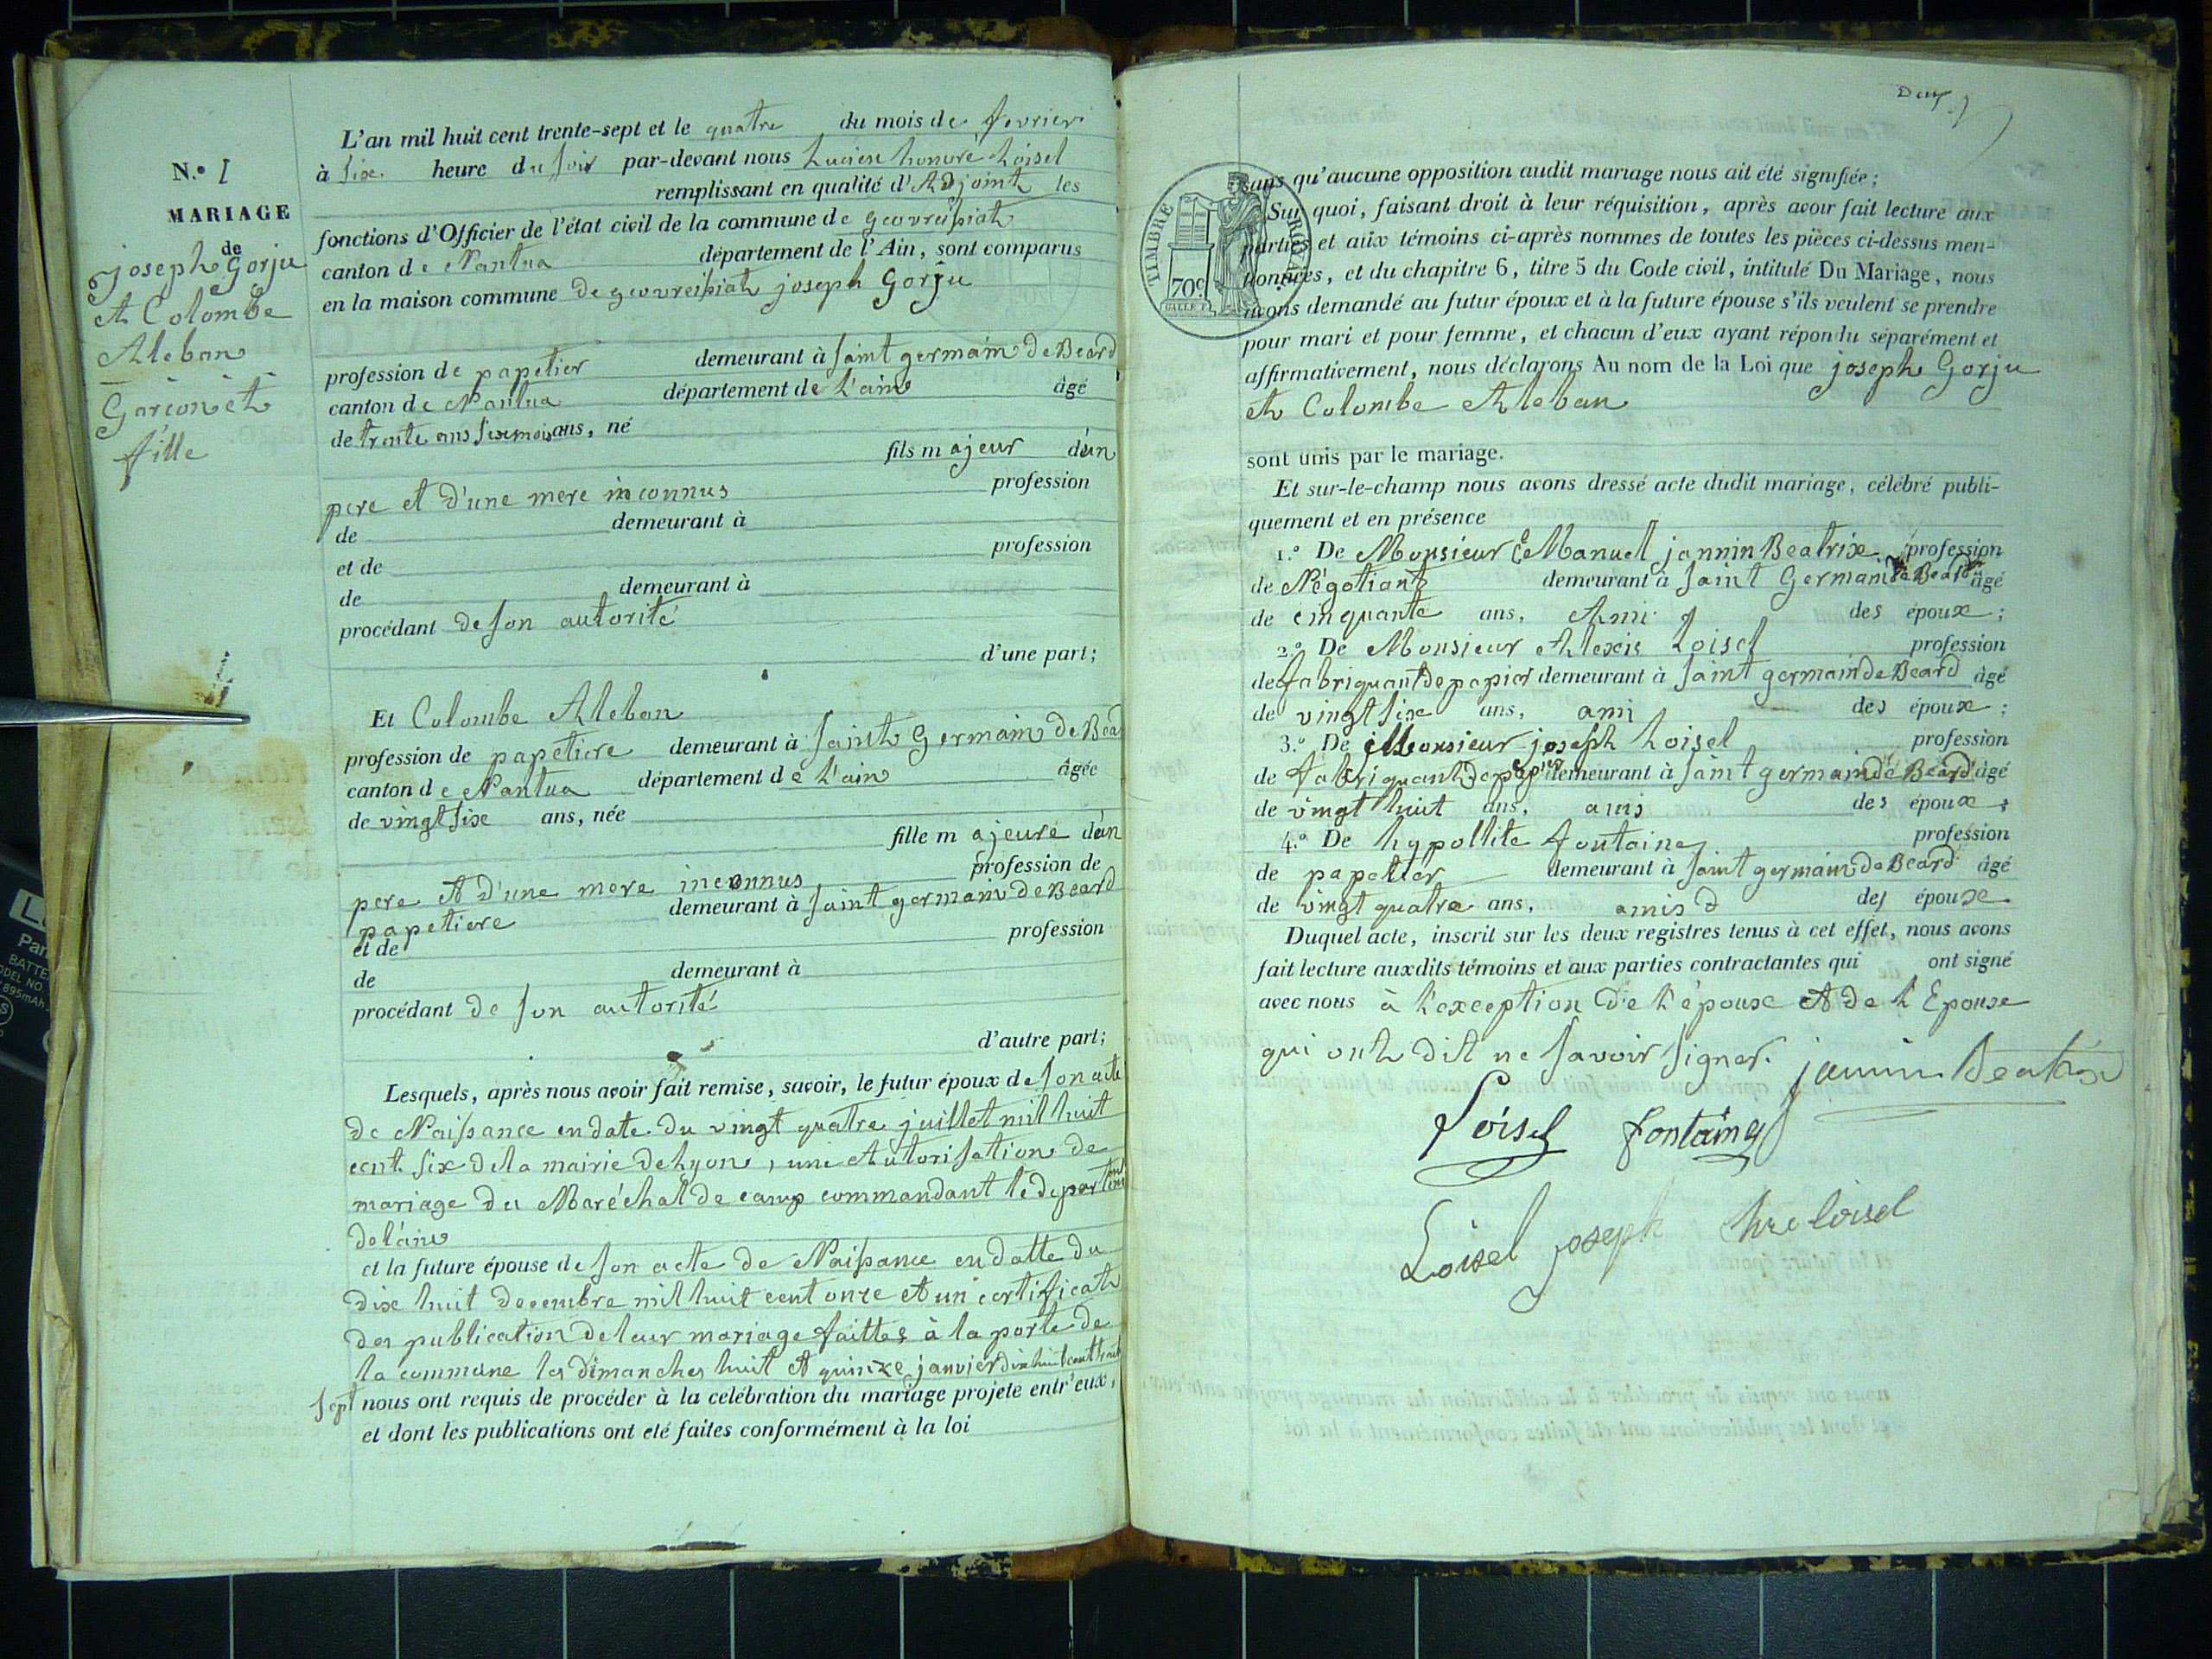 N.º 1
MARIAGE
de
joseph Gorju
et Colombe
Aleban
Garçon et
fille
L'an mil huit cent trente-sept et le quatre du mois de fevrier
à six heure du soir par-devant nous Lucien honoré Loisel
remplissant en qualité d'Adjoint les
fonctions d'Officier de l'état civil de la commune de geovreissiat
canton de Nantua département de l'Ain, sont comparus
en la maison commune de geovreissiat joseph Gorju
profession de papetier demeurant à saint germain de Beard
canton de Nantua département de L'ain âgé
de trente ans six mois ans, né
fils majeur d'un
pere et d'une mere inconnus profession
de demeurant à
et de profession
de demeurant à
procédant de son autorité
d'une part;
Et Colombe Aleban
profession de papetiere demeurant à saint Germain de Bea
canton de Nantua département de L'ain âgée
de vingt six ans, née
fille majeure d'un
pere et d'une mere inconnus profession de
papetiere demeurant à saint germain de Beard
et de profession
de demeurant à
procédant de son autorité
d'autre part;
Lesquels, après nous avoir fait remise, savoir, le futur époux de son acte
de Naissance en date du vingt quatre juillet mil huit
cent six de la mairie de Lyon, une Autorisation de
mariage du Maréchal de camp commandant le departement
de l'ain
et la future épouse de son acte de Naissance en datte du
dix huit decembre mil huit cent onze et un certificat
des publication de leur mariage faittes à la porte de
la commune les dimanches huit et quinze janvier dix huit cent trente
sept nous ont requis de procéder à la celébration du mariage projete entr'eux,
et dont les publications ont eté faites conformément à la loi
Deux
TIMBRE ROYAL
70c
sans qu'aucune opposition audit mariage nous ait été signifiée;
Sur quoi, faisant droit à leur réquisition, après avoir fait lecture aux
parties et aux témoins ci-après nommes de toutes les pièces ci-dessus men-
tionnées, et du chapitre 6, titre 5 du Code civil, intitulé Du Mariage, nous
avons demandé au futur époux et à la future épouse s'ils veulent se prendre
pour mari et pour femme, et chacun d'eux ayant répondu séparément et
affirmativement, nous déclarons Au nom de la Loi que joseph Gorju
et Colombe Aleban
sont unis par le mariage.
Et sur-le-champ nous avons dressé acte dudit mariage, célébré publi-
quement et en présence
1.º De Monsieur EManuel jannin Beatrix profession
de Négotiant demeurant à saint Germain de Beard âgé
de cinquante ans, Ami des époux;
2.º De Monsieur Alexis Loisel profession
de fabriquant de papier demeurant à saint germain de Beard âgé
de vingt six ans, ami des époux;
3.º De Monsieur joseph Loisel profession
de fabriquant de papier demeurant à saint germain de Beard âgé
de vingt huit ans, amis des époux;
4.º De hypollite fontaine profession
de papetier demeurant à saint germain de Beard âgé
de vingt quatre ans, amis d des époux.
Duquel acte, inscrit sur les deux registres tenus à cet effet, nous avons
fait lecture auxdits témoins et aux parties contractantes qui ont signé
avec nous à l'exception de l'épouse et de L'Epouse
qui ont dit ne savoir signer. jannin Beatrix
Loisel fontaine
Loisel joseph hre loisel